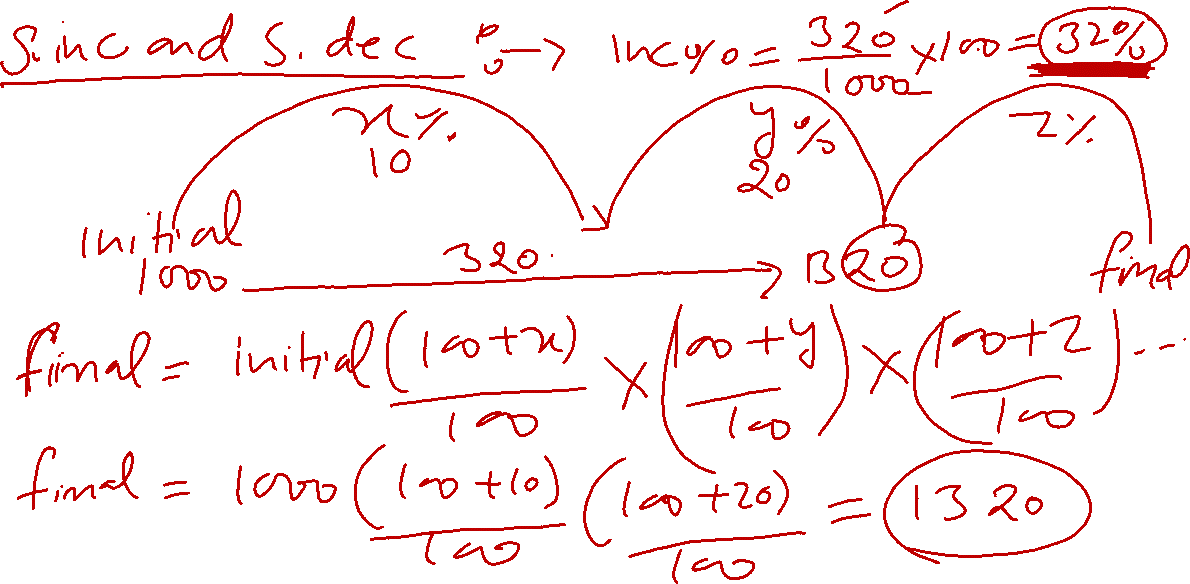 S. inc and S. dec :→ inc% = 320/1000 ×100 = 32%
x% y% z%
10 20
initial final
1000 320 1320
final = initial (100+x)/100 × (100+y)/100 × (100+z)/100 ...
final = 1000 (100+10)/100 (100+20)/100 = 1320